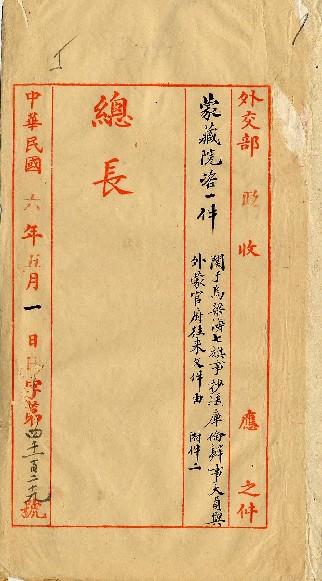 外交部 收 應 之件
蒙藏院咨一件
関于烏梁海七旗事抄送庫倫辦事大員與
外蒙官府往來文件由 附件二
總長
中華民國六年五月一日 字第四千百二十九號